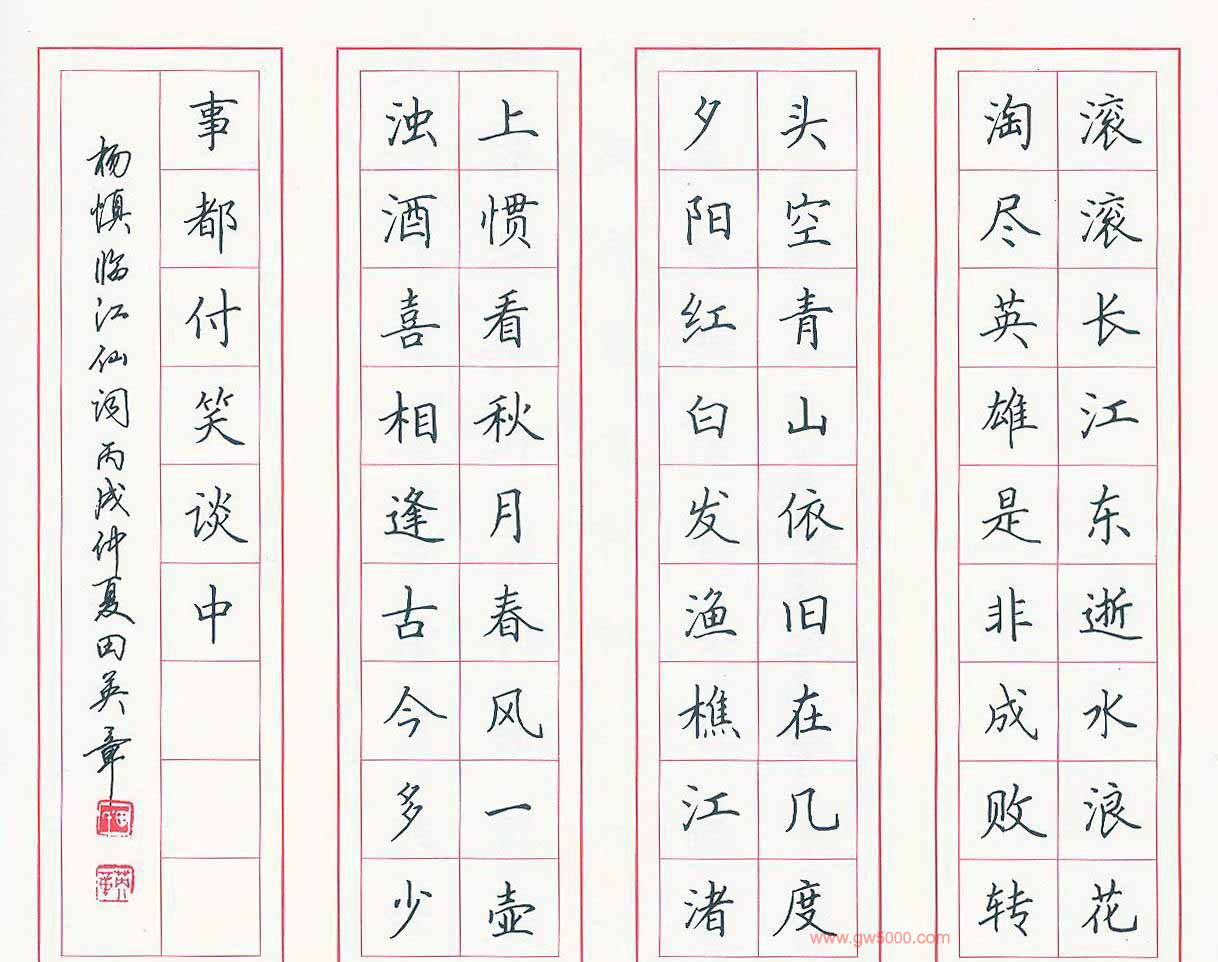 滚滚长江东逝水浪花
淘尽英雄是非成败转
头空青山依旧在几度
夕阳红白发渔樵江渚
上惯看秋月春风一壶
浊酒喜相逢古今多少
事都付笑谈中
杨慎临江仙词丙戌仲夏田英章
www.gw5000.com